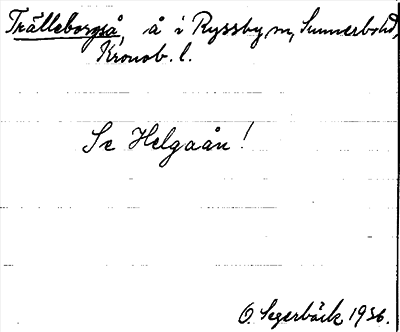 Trälleborgså, å i Ryssby sn, Sunnerbohd,
Kronob. l.
Se Helgaån!
O. Segerbäck 1936.